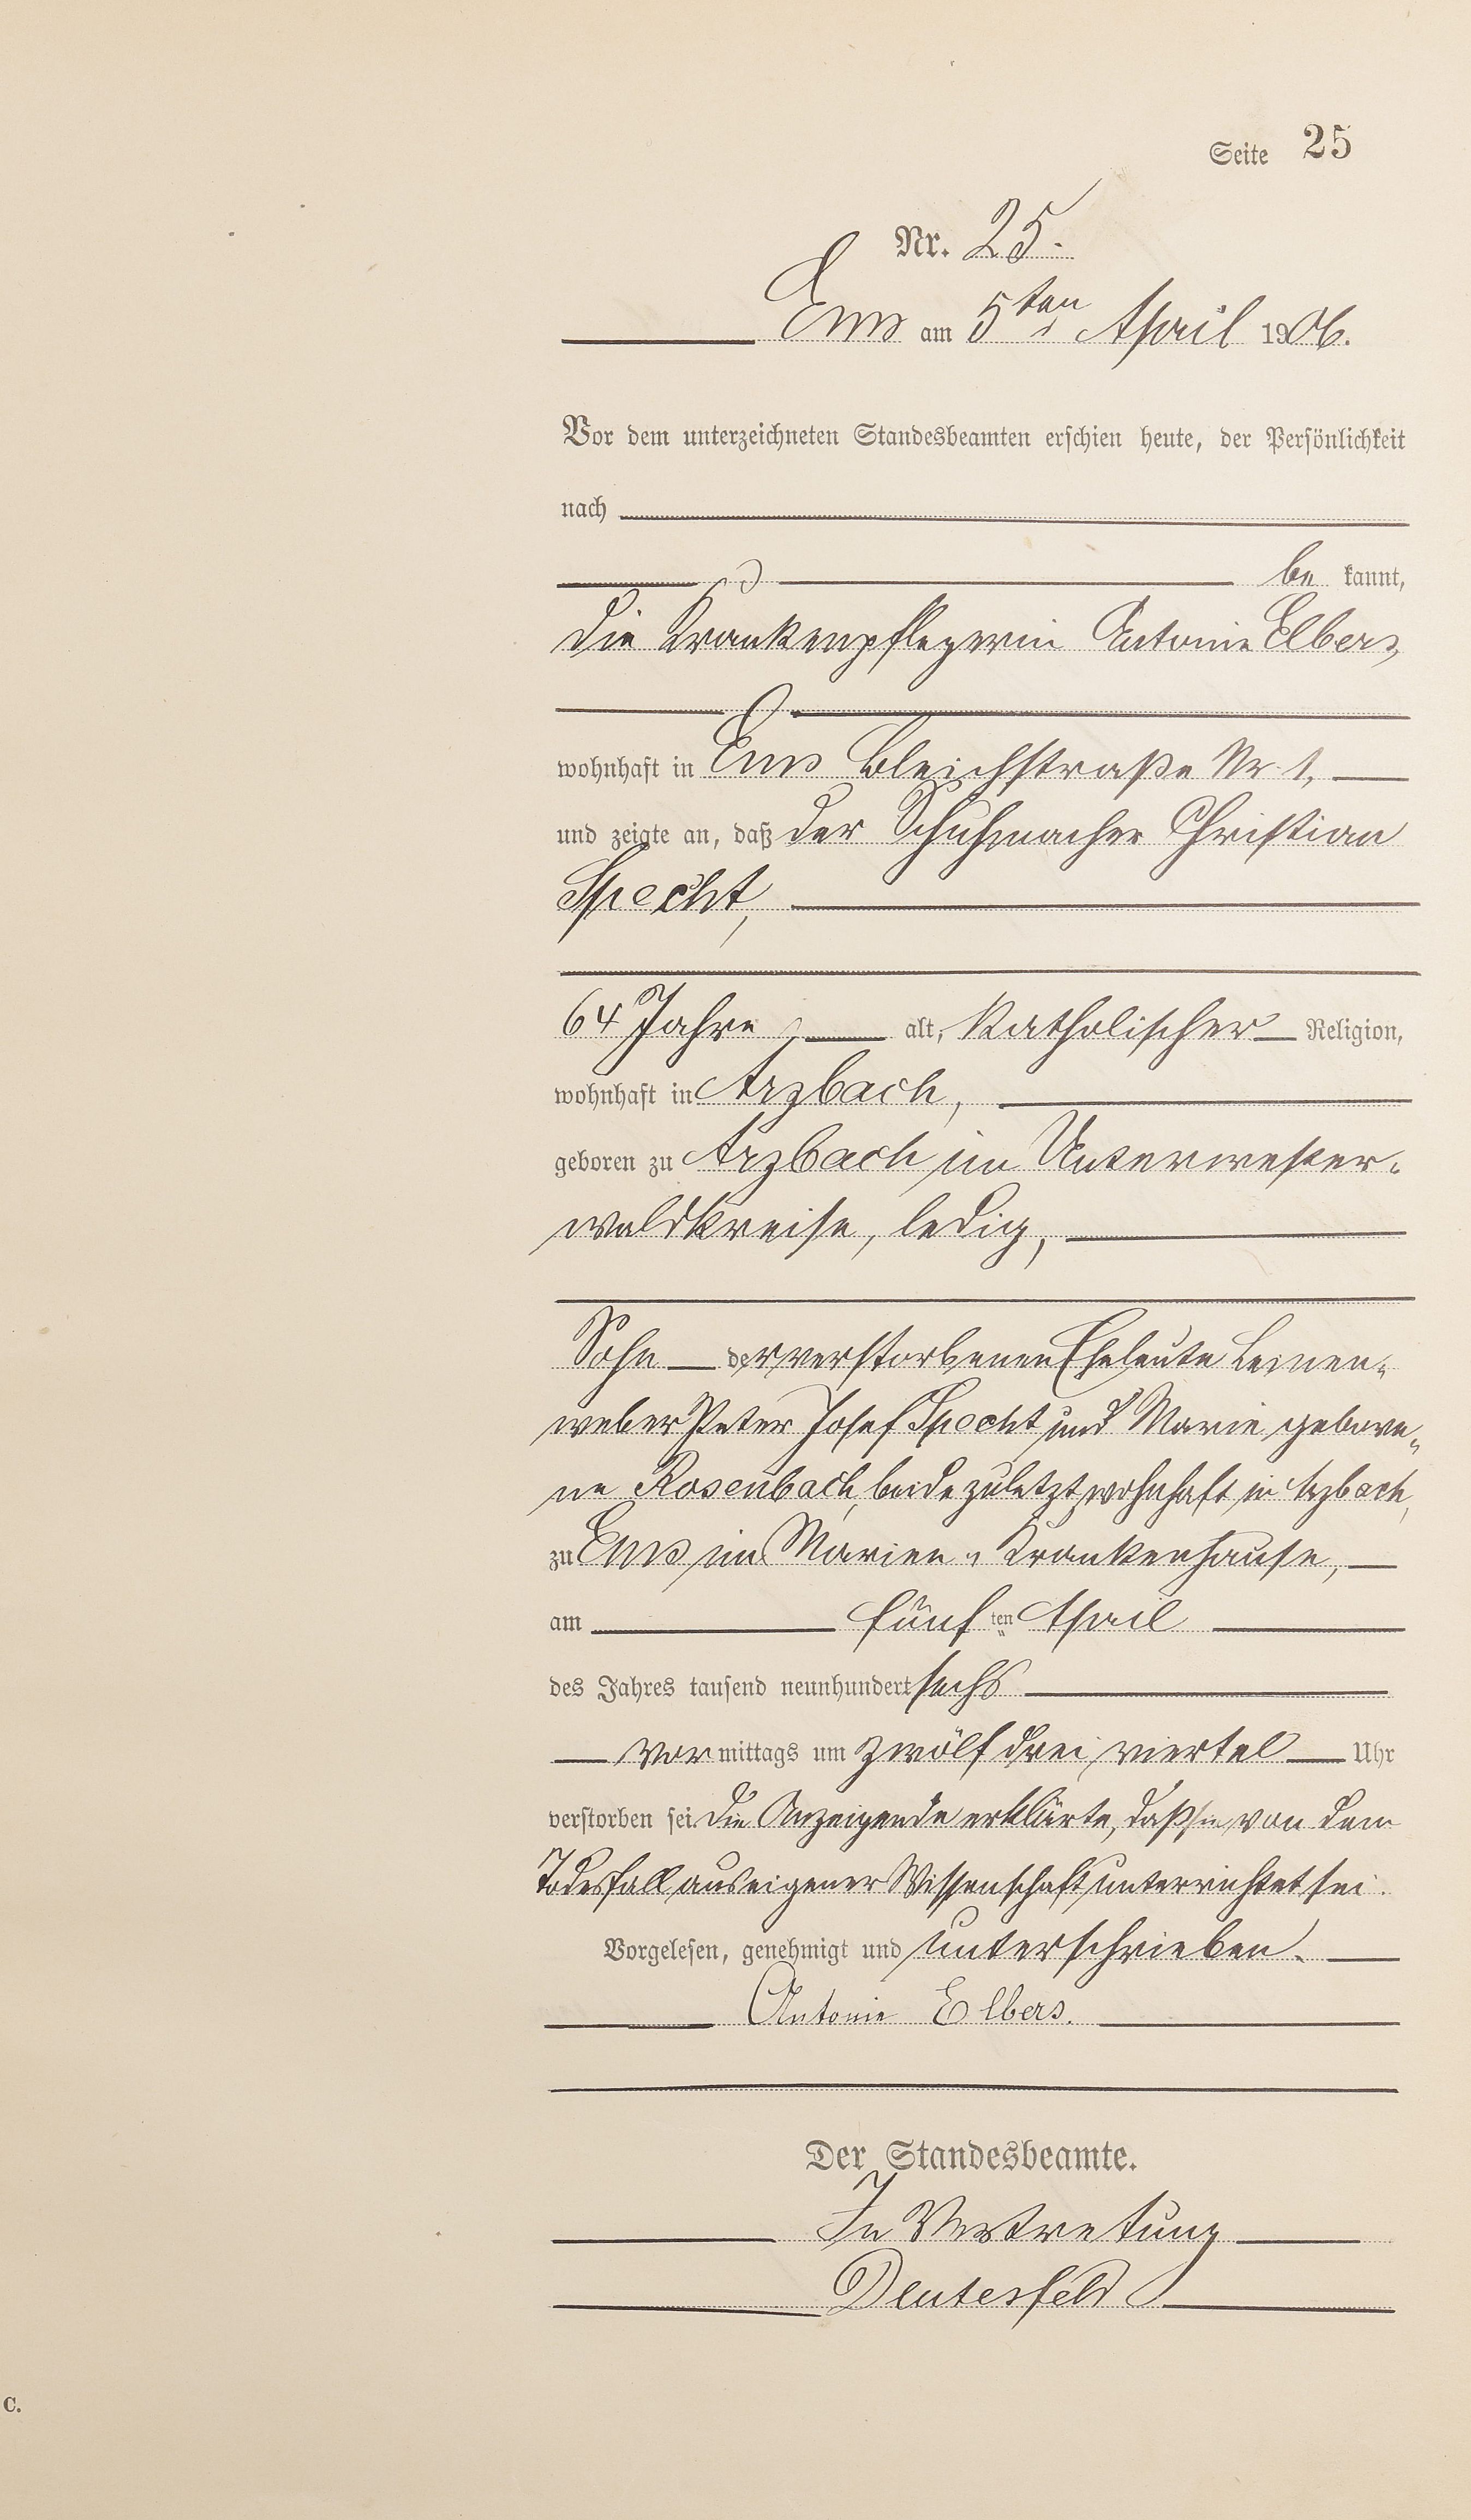 Seite 25
Nr. 25.
Ems am 5ten April 1906.
Vor dem unterzeichneten Standesbeamten erschien heute, der Persönlichkeit
nach
be kannt,
die Krankenpflegerin Antonie Elbers,
wohnhaft in Ems Bleichstraße Nr. 1,
und zeigte an, daß der Schuhmacher Christian
Specht,
64 Jahre, alt, katholischer Religion,
wohnhaft in Arzbach,
geboren zu Arzbach im Unterwester-
waldkreise, ledig,
Sohn der verstorbenen Eheleute Leinen-
weber Peter Josef Specht und Marie gebore-
ne Rosenbach, beide zuletzt wohnhaft in Arzbach,
zu Ems im Marien-Krankenhause,
am fünften April
des Jahres tausend neunhundert sechs
Vor mittags um zwölf drei viertel Uhr
verstorben sei. Die Anzeigende erklärte, daß sie von dem
Todesfall aus eigener Wissenschaft unterrichtet sei.
Vorgelesen, genehmigt und unterschrieben.
Antonie Elbers.
Der Standesbeamte.
In Vertretung
Deutesfeld
C.